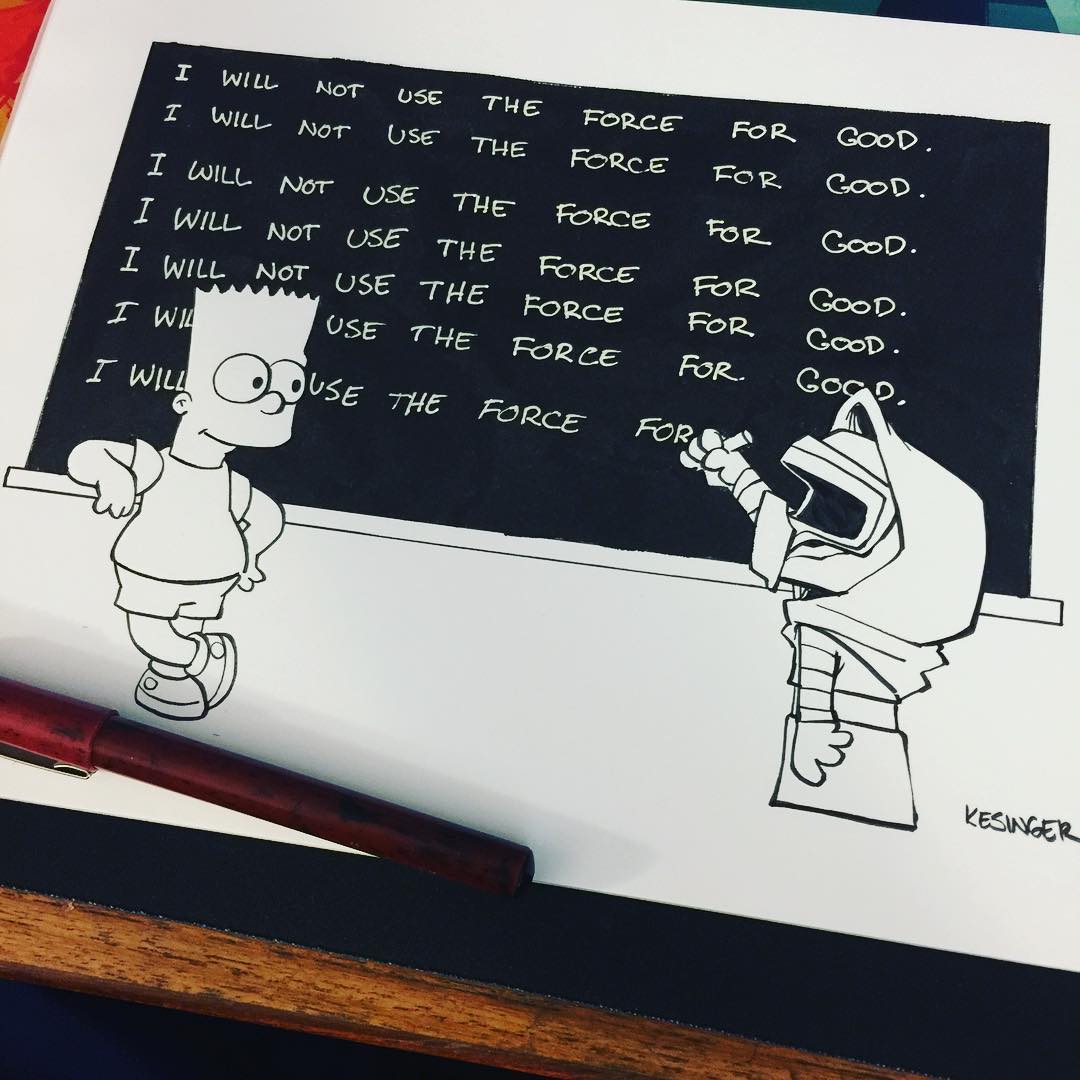 I WILL NOT USE THE FORCE FOR GOOD.
I WILL NOT USE THE FORCE FOR GOOD.
I WILL NOT USE THE FORCE FOR GOOD.
I WILL NOT USE THE FORCE FOR GOOD.
I WILL NOT USE THE FORCE FOR GOOD.
I WIL USE THE FORCE FOR. GOOD.
I WILL USE THE FORCE FOR
KESINGER